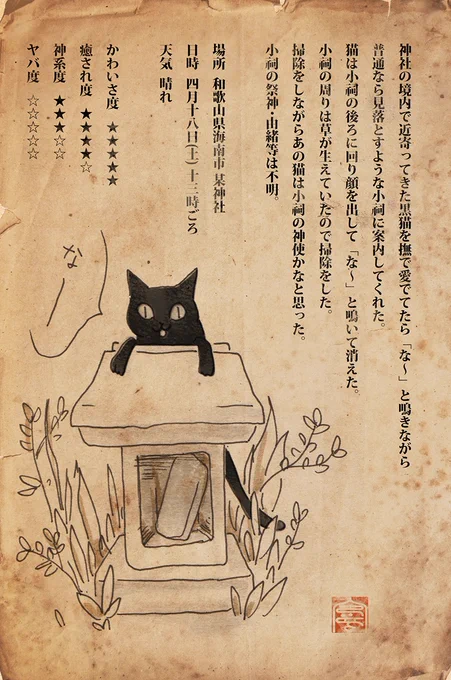 神社の境内で近寄ってきた黒猫を撫で愛でてたら「な〜」と鳴きながら
普通なら見落とすような小祠に案内してくれた。
猫は小祠の後ろに回り顔を出して「な〜」と鳴いて消えた。
小祠の周りは草が生えていたので掃除をした。
掃除をしながらあの猫は小祠の神使かなと思った。
小祠の祭神・由緒等は不明。
場所 和歌山県海南市 某神社
日時 四月十八日(土) 十三時ごろ
天気 晴れ
かわいさ度 ★★★★★
癒され度 ★★★★☆
神系度 ★★★☆☆
ヤバ度 ☆☆☆☆☆
なー